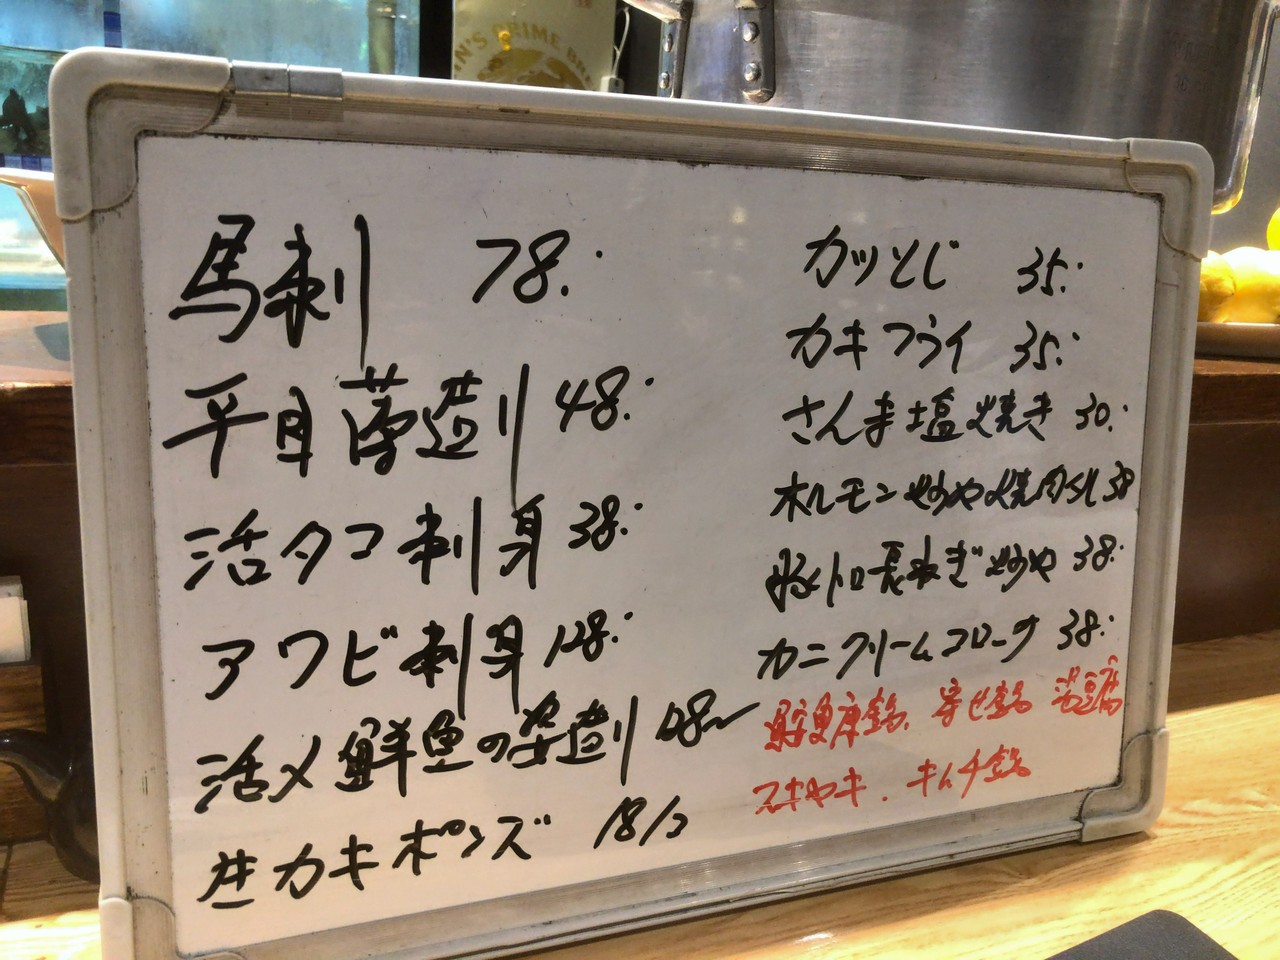 馬刺 78.
平目薄造り 48.
活タコ刺身 38.
アワビ刺身 128.
活〆鮮魚の姿造り 108~
生カキポンズ 18/コ
カツとじ 35.
カキフライ 35.
さんま塩焼き 30.
ホルモン炒め焼肉ダレ 38
豚トロ長ねぎ炒め 38.
カニクリームコロッケ 38.
寄せ鍋 湯豆腐
スキヤキ.キムチ鍋
PRIME BRE